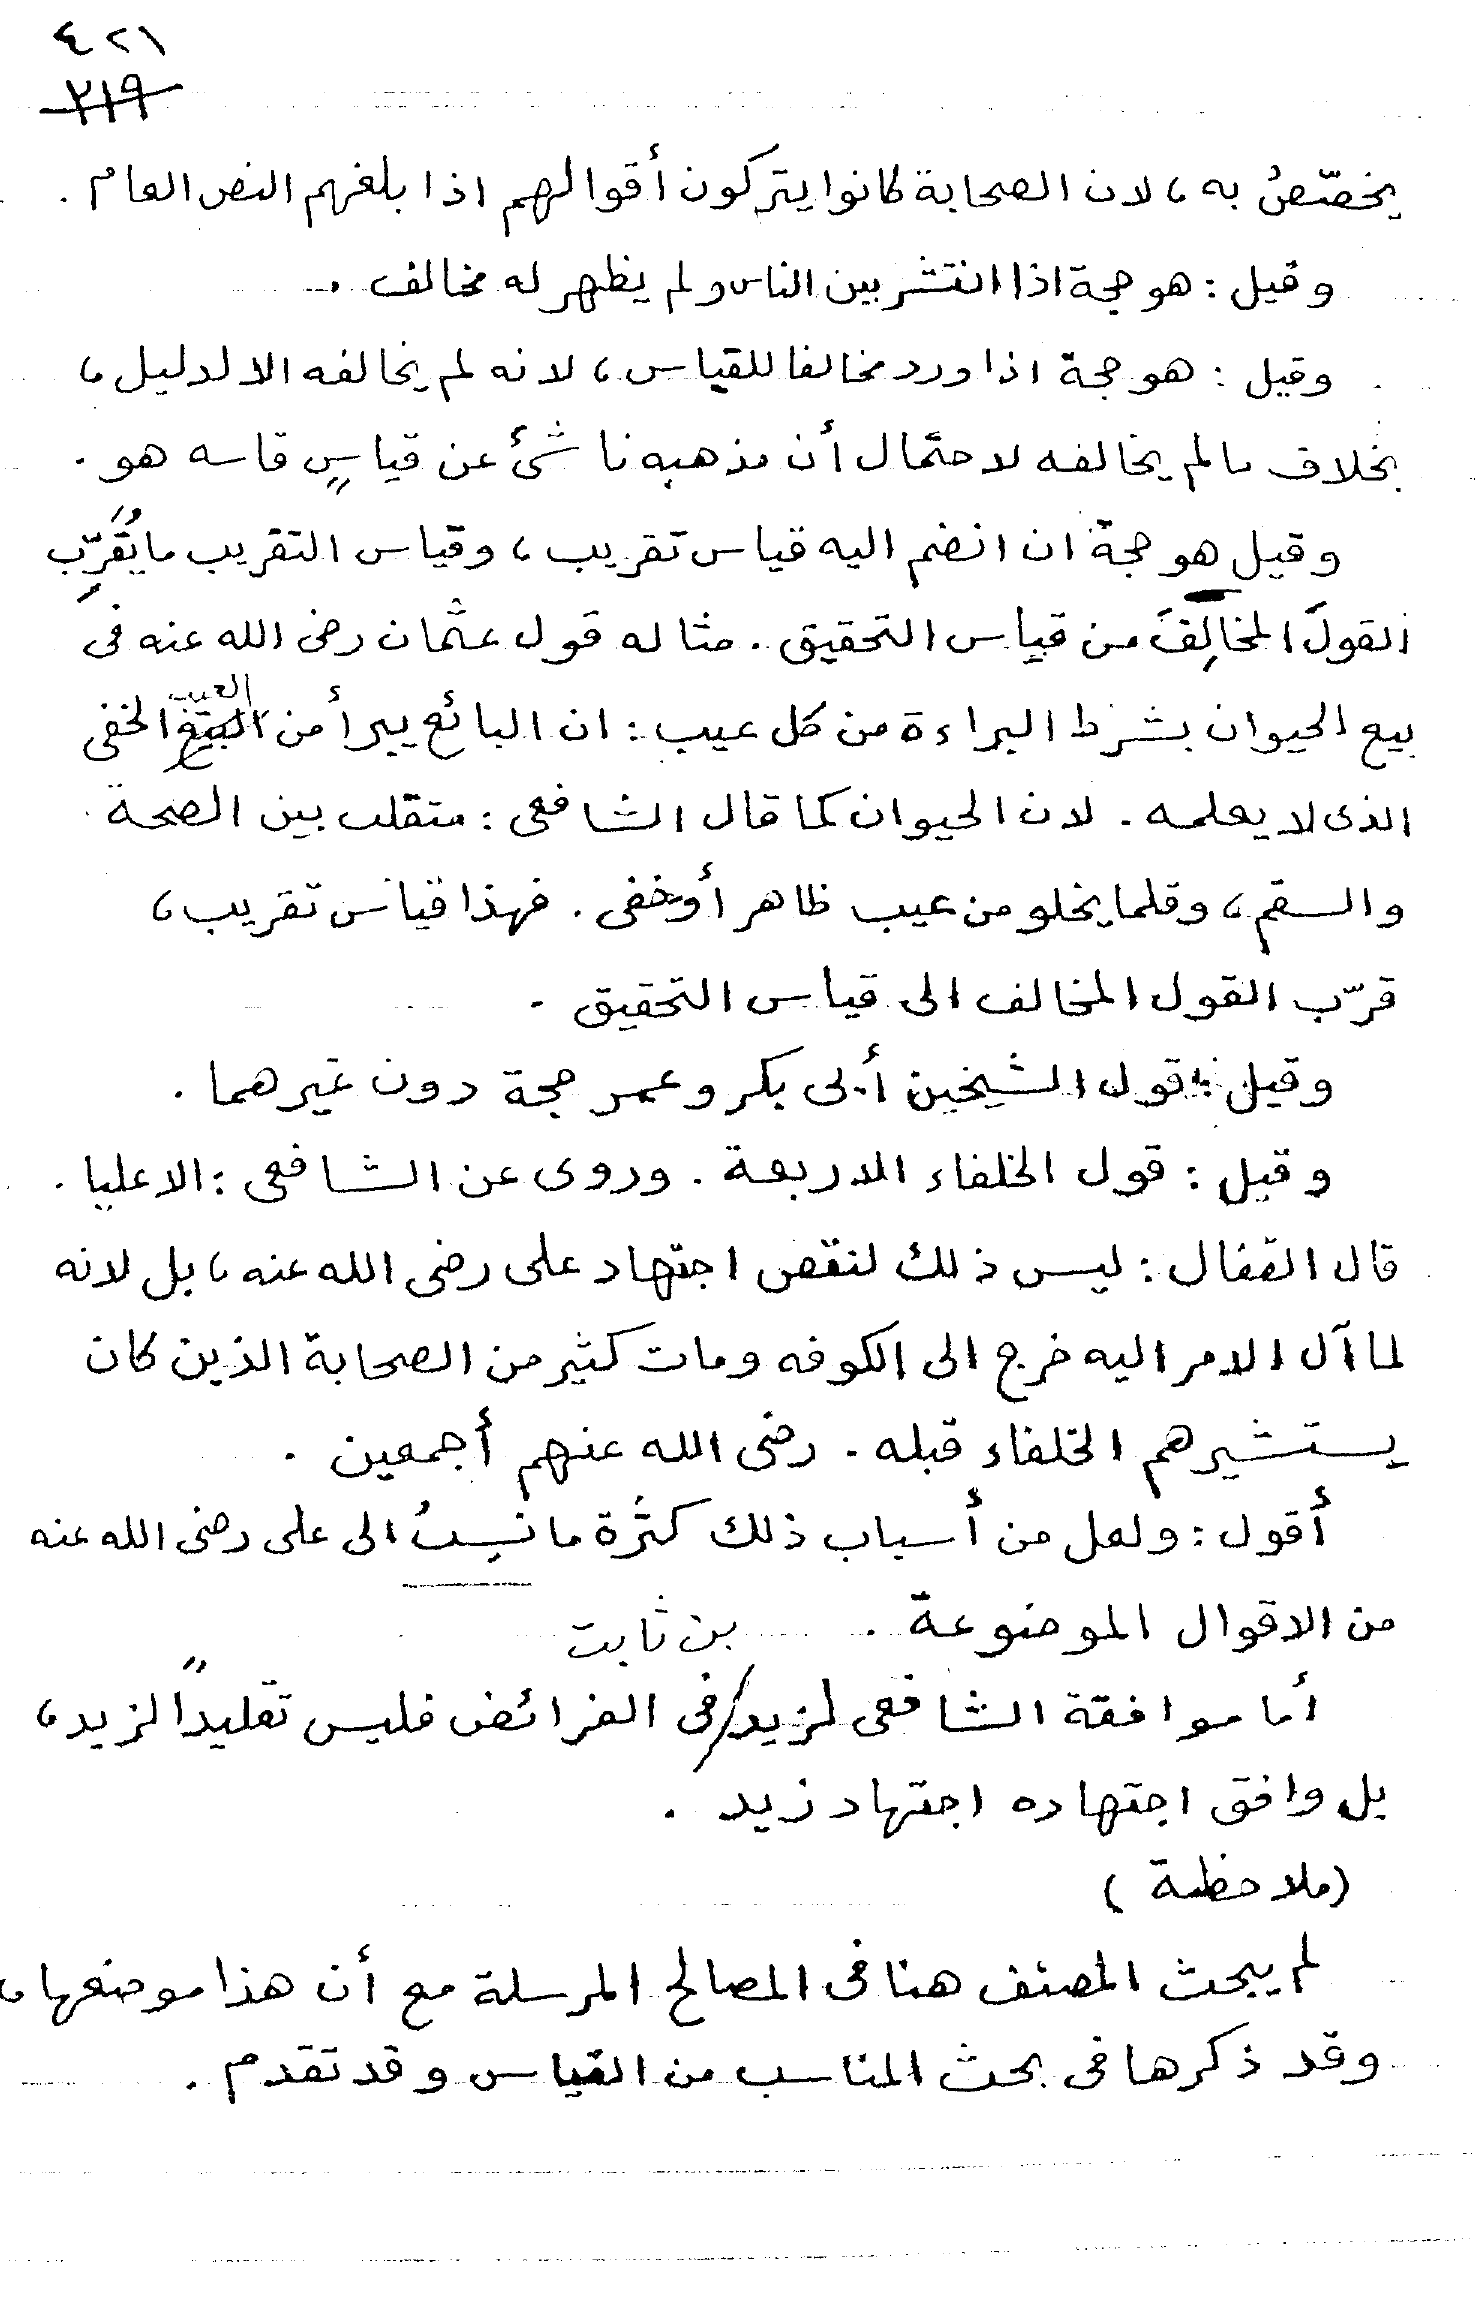 ٤٢١
٢١٩
يخصّصُ به، لان الصحابة كانوا يتركون أقوالهم اذا بلغهم النص العام .
وقيل : هو حجة اذا انتشر بين الناس ولم يظهر له مخالف .
وقيل : هو حجة اذا ورد مخالفا للقياس، لانه لم يخالفه الا لدليل،
بخلاف مالم يخالفه لاحتمال أن مذهبه ناشئ عن قياسٍ قاسه هو .
وقيل هو حجة ان انضم اليه قياس تقريب، وقياس التقريب ما يُقَرِّب
القولَ المخالِفَ من قياس التحقيق . مثاله قول عثمان رضى الله عنه فى
بيع الحيوان بشرط البراءة من كل عيب : ان البائع يبرأ من العيب الخفى
الذى لا يعلمه . لان الحيوان كما قال الشافعى : متقلب بين الصحة
والسقم، وقلما يخلو من عيب ظاهر أو خفى . فهذا قياس تقريب،
قرّب القول المخالف الى قياس التحقيق .
وقيل : قول الشيخين أبى بكر وعمر حجة دون غيرهما .
وقيل : قول الخلفاء الاربعة . وروى عن الشافعى : الا عليا .
قال القفال : ليس ذلك لنقص اجتهاد على رضى الله عنه، بل لانه
لما آل الامر اليه خرج الى الكوفه ومات كثير من الصحابة الذين كان
يستشيرهم الخلفاء قبله . رضى الله عنهم أجمعين .
أقول : ولعل من أسباب ذلك كثرة ما نسِبُ الى على رضى الله عنه
من الاقوال الموضوعة .
أما موافقة الشافعى لزيد بن ثابت فى الفرائض فليس تقليداً لزيد،
بل وافق اجتهاده اجتهاد زيد .
(ملاحظة)
لم يبحث المصنف هنا فى المصالح المرسلة مع أن هذا موضعها،
وقد ذكرها فى بحث المناسب من القياس وقد تقدم .